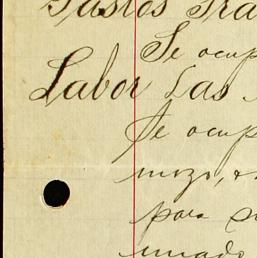 Gastos Tra
Se ocup
Labor Las
Se ocup
mozo,
para